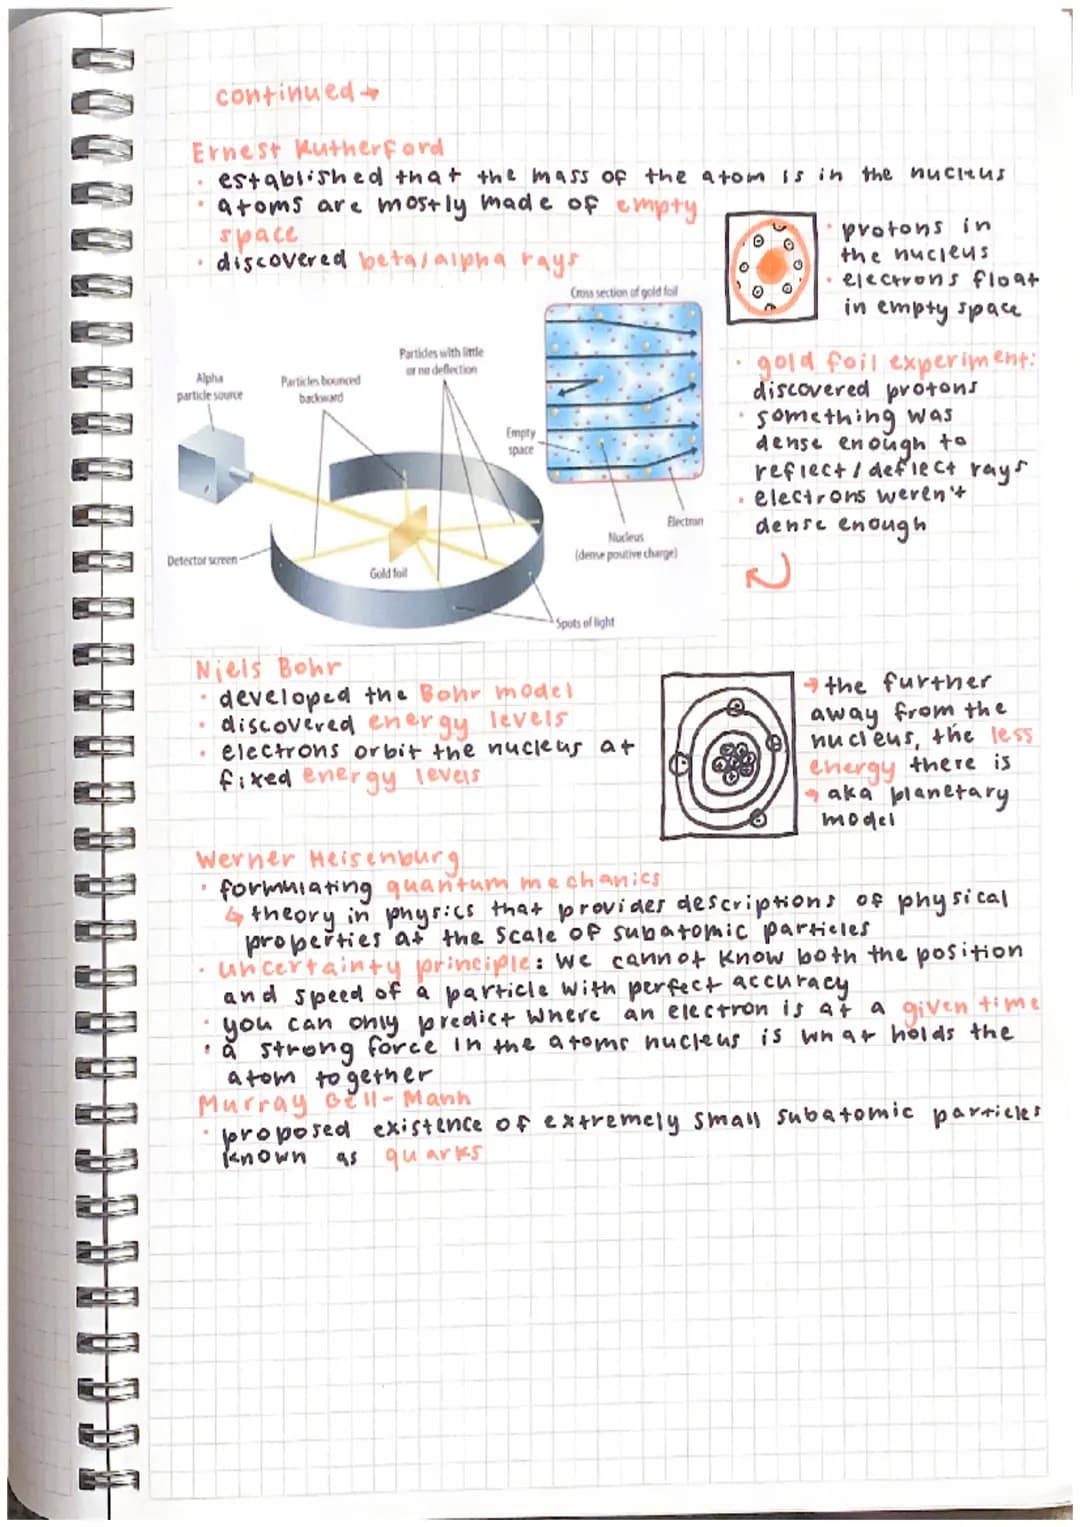 continued →
Ernest Rutherford
• established that the mass of the atom is in the nucleus
• atoms are mostly made of empty
space
• discovered beta/alpha rays
• protons in
the nucleus
• electrons float
in empty space
Cross section of gold foil
Particles with little
or no deflection
Alpha
particle source
Particles bounced
backward
Empty
space
Electron
Nucleus
(dense positive charge)
Detector screen
Gold foil
Spots of light
• gold foil experiment:
discovered protons
• something was
dense enough to
reflect/deflect rays
• electrons weren't
dense enough
Niels Bohr
• developed the Bohr model
• discovered energy levels
• electrons orbit the nucleus at
fixed energy levels
→ the further
away from the
nucleus, the less
energy there is
→ aka planetary
model
Werner Heisenburg
• formulating quantum mechanics
↳ theory in physics that provides descriptions of physical
properties at the scale of subatomic particles
• uncertainty principle: we cannot know both the position
and speed of a particle with perfect accuracy
• you can only predict where an electron is at a given time
• a strong force in the atoms nucleus is what holds the
atom together
Murray Gell-Mann
• proposed existence of extremely small subatomic particles
known as quarks